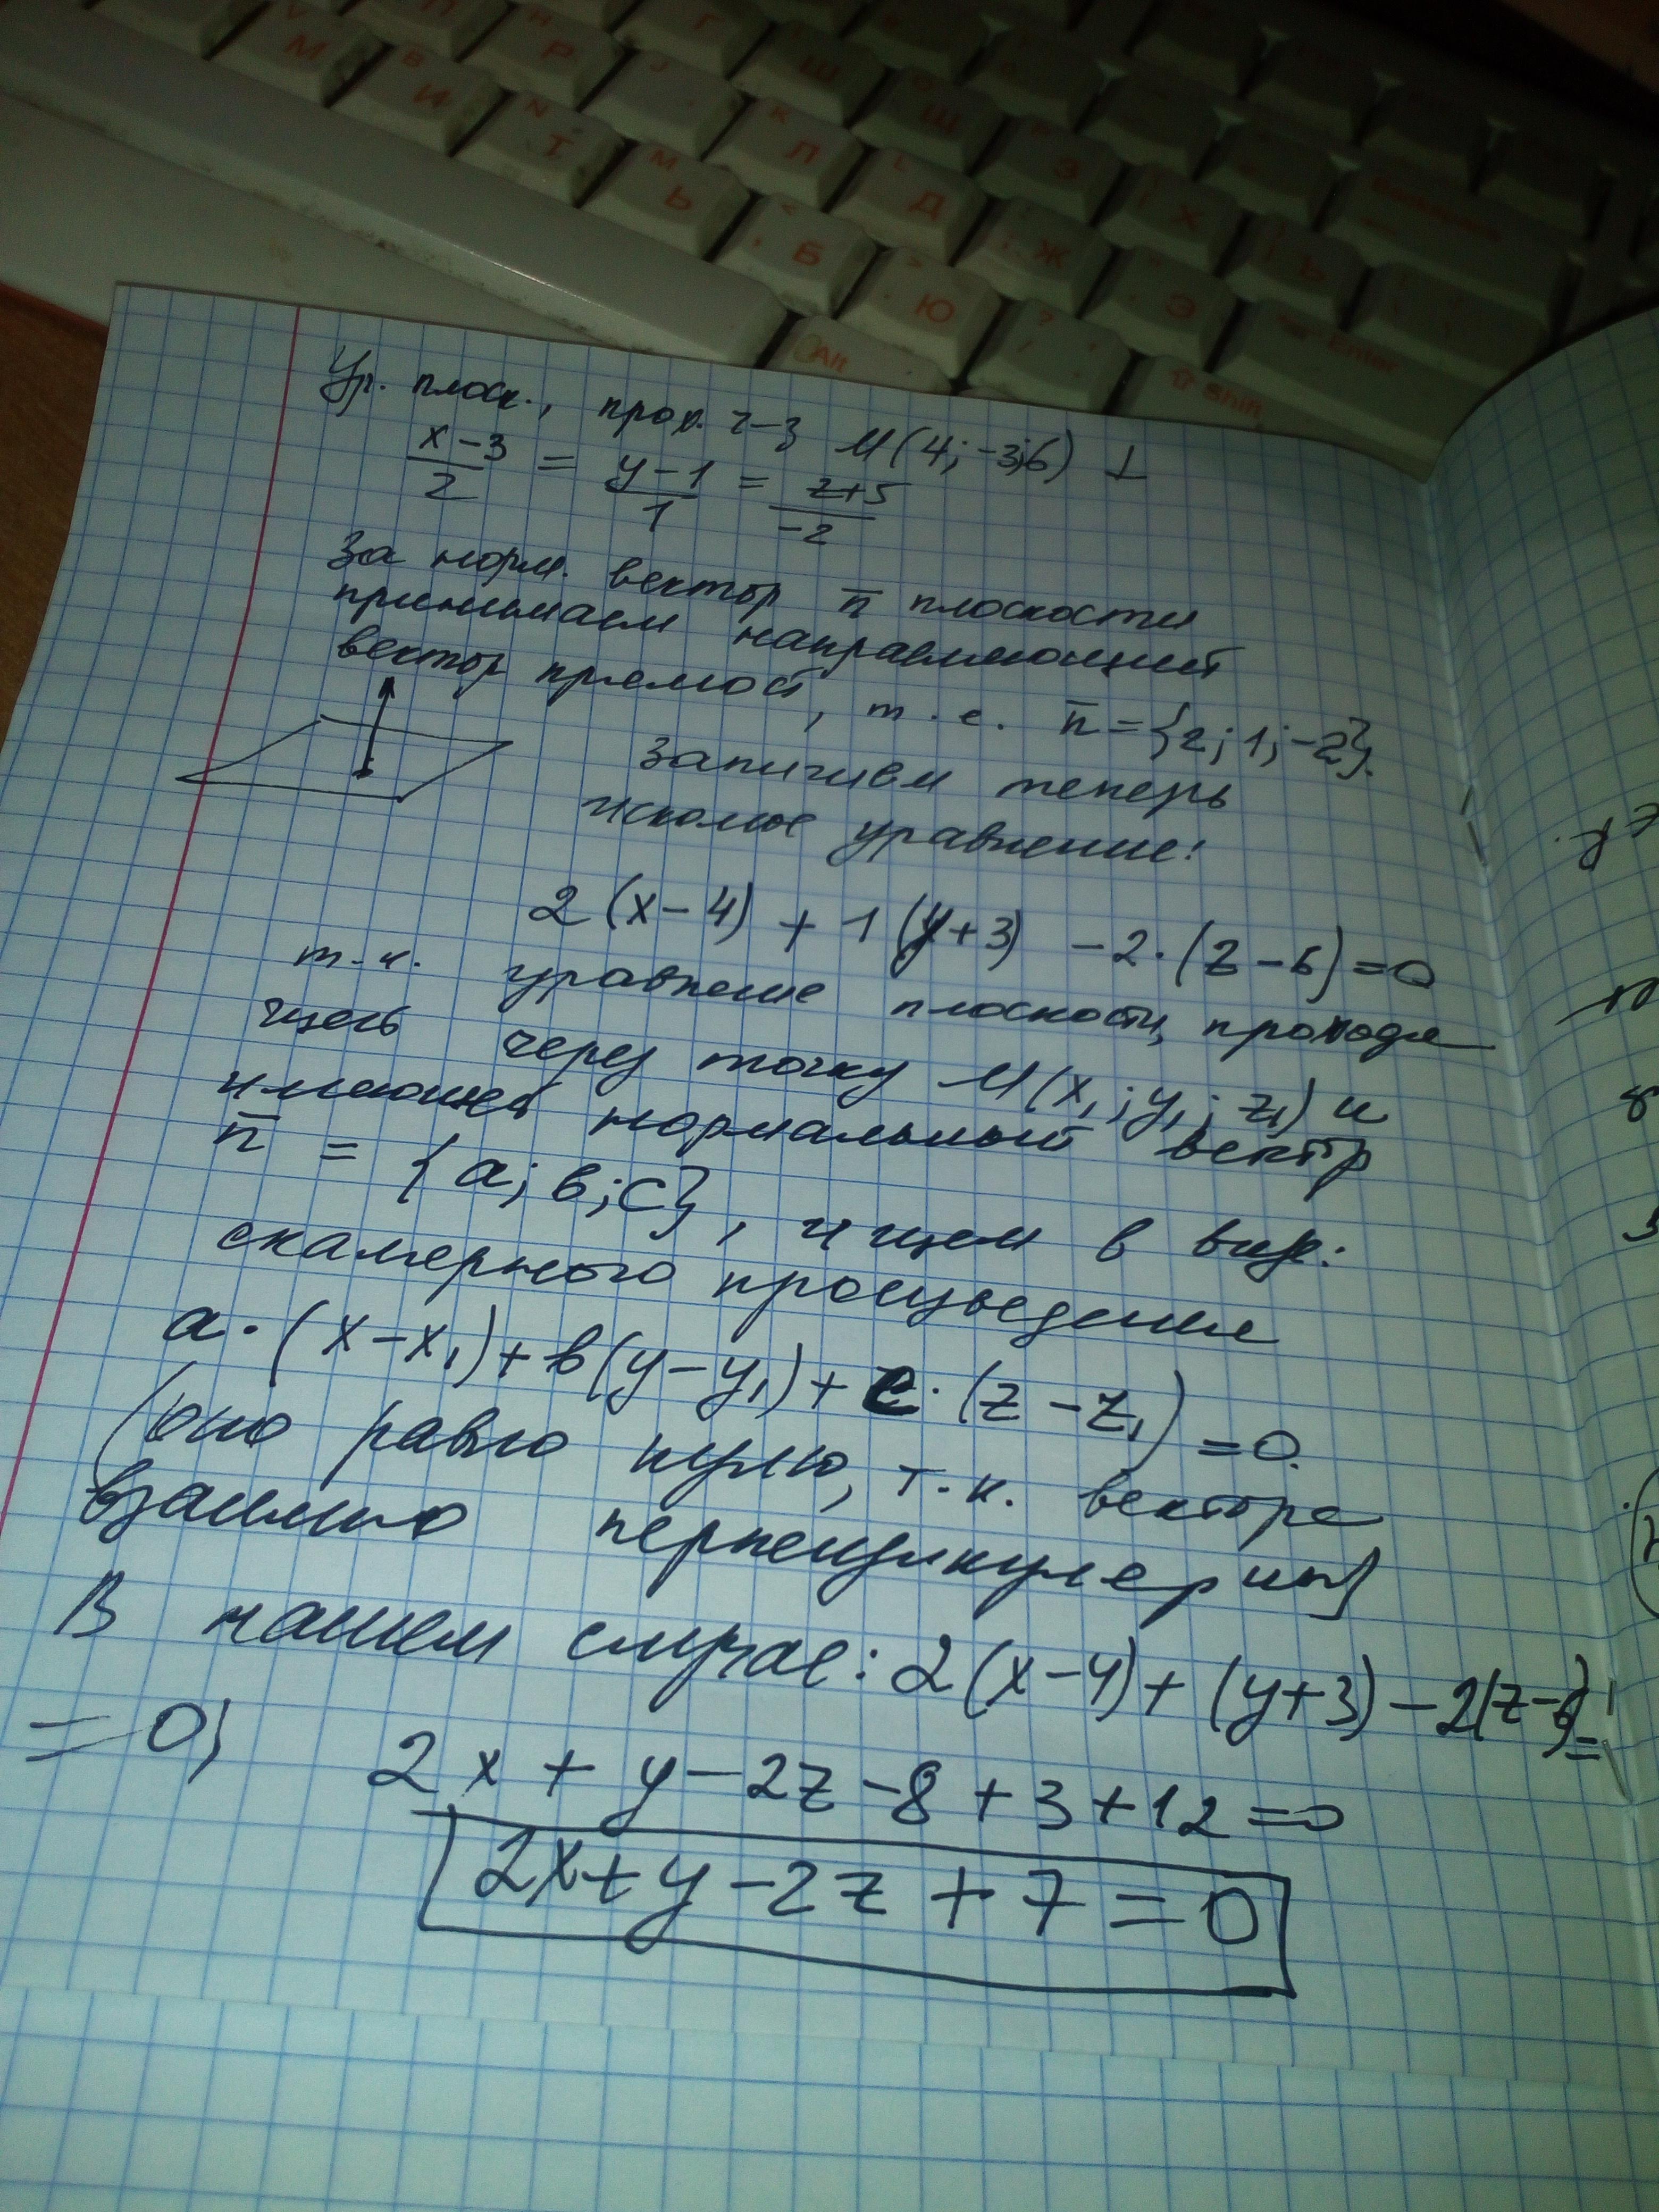 М
И
Т
Ь
Б
Ю
Р
Г
Ш
Л
Д
Ж
Э
З
Х
Ъ
Alt
Enter
Shift
Ур. плоск., прох. ч-з М(4; -3; 6) ⊥
(x-3)/2 = (y-1)/1 = (z+5)/-2
За норм. вектор n̅ плоскости
принимаем направляющий
вектор прямой, т.е. n̅ = {2; 1; -2}.
Запишем теперь
искомое уравнение:
2(x-4) + 1(y+3) - 2·(z-6) = 0
т.к. уравнение плоскости, проходя
щей через точку М(x₁; y₁; z₁) и
имеющей нормальный вектор
n̅ = {а; в; с}, ищем в виде:
скалярного произведения
а·(x-x₁)+в(y-y₁)+с·(z-z₁)=0.
(оно равно нулю, т.к. вектора
взаимно перпендикулярны)
В нашем случае: 2(x-4)+(y+3)-2(z-6)=
=0;
2x + y - 2z - 8 + 3 + 12 = 0
2x+y-2z+7=0